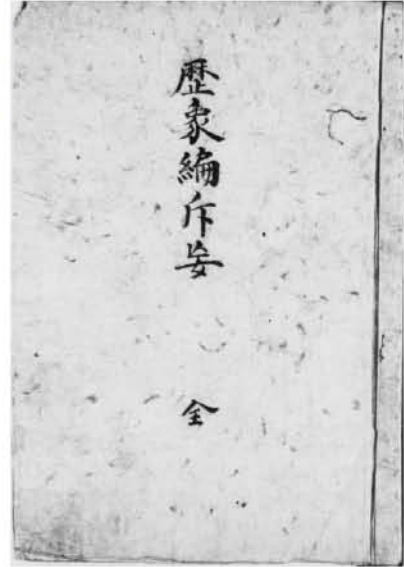 歴象編斥妄
全